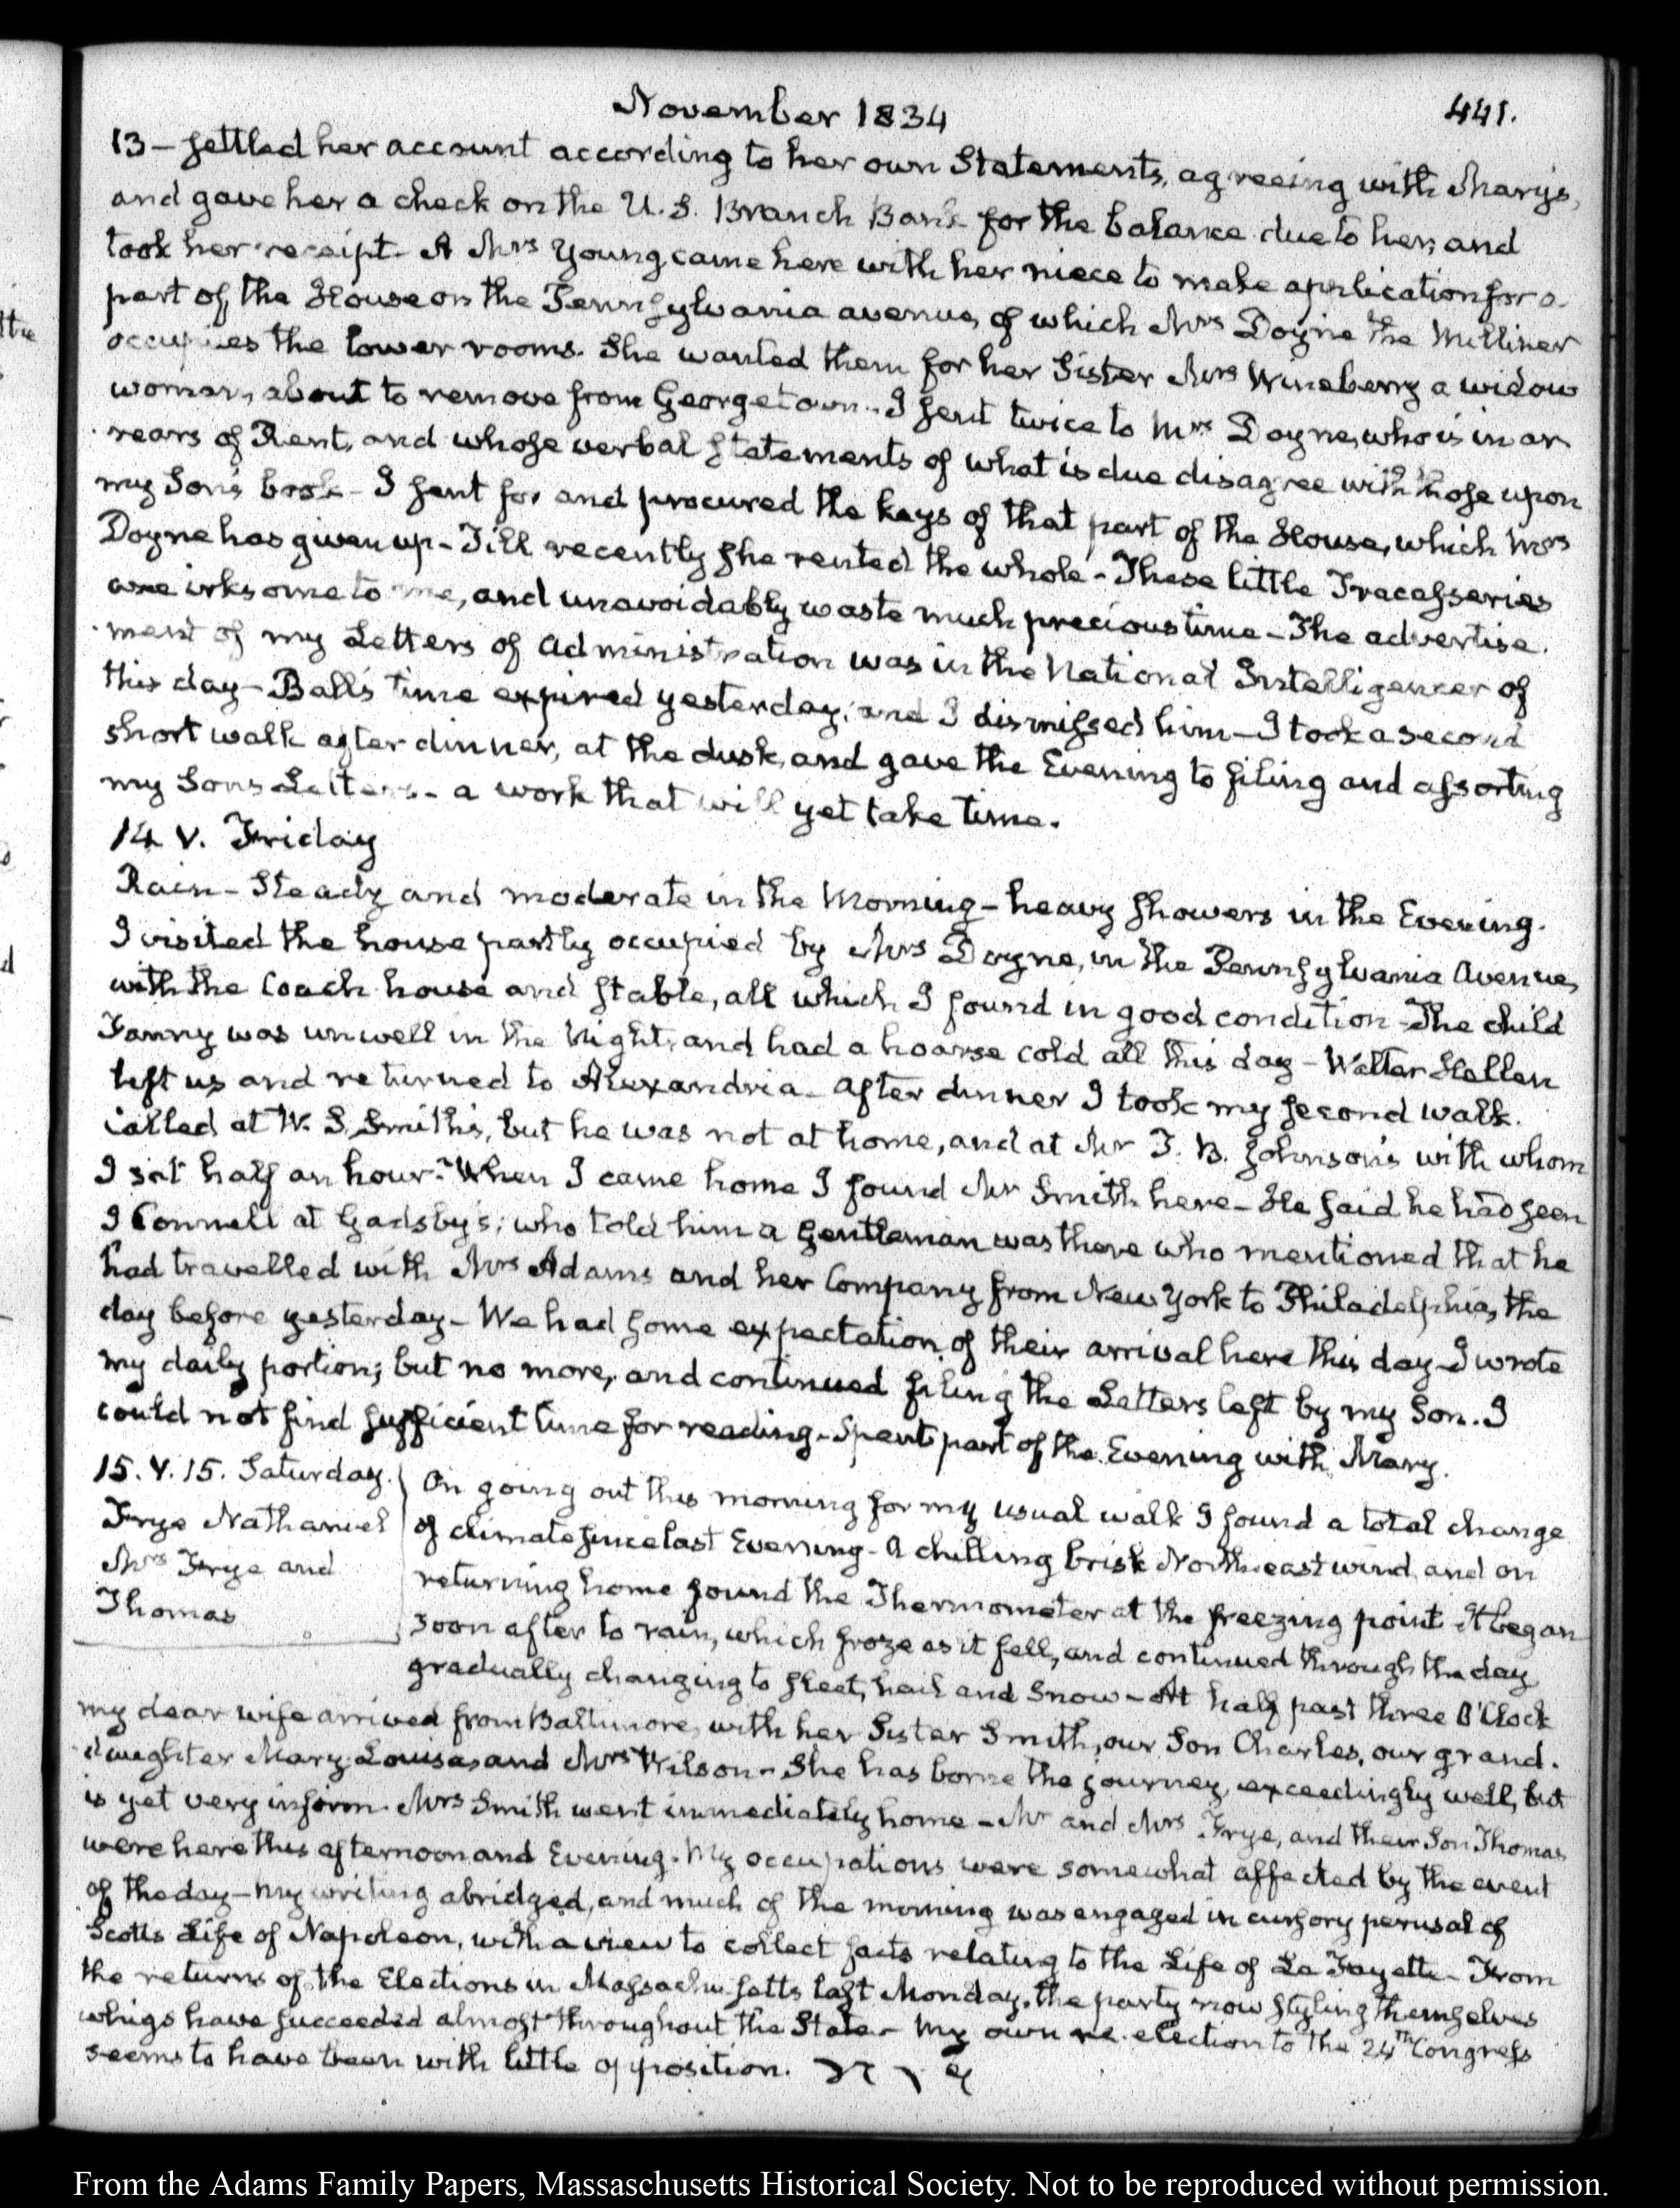 November 1834
441.
13 – settled her account according to her own Statements, agreeing with Mary's,
and gave her a check on the U.S. Branch Bank for the balance due to her, and
took her receipt – A Mrs Young came here with her niece to make application for a
part of the House on the Pennsylvania avenue, of which Mrs Doyne the Milliner
occupies the lower rooms. She wanted them for her Sister Mrs Wineberry a widow
woman, about to remove from Georgetown – I sent twice to Mrs Doyne, who is in ar-
rears of Rent, and whose verbal statements of what is due disagree with those upon
my Son's book – I sent for and procured the keys of that part of the House, which Mrs
Doyne has given up – Till recently she rented the whole – These little Tracasseries
are irksome to me, and unavoidably waste much precious time – The advertise-
ment of my Letters of Administration was in the National Intelligencer of
this day – Ball's time expired yesterday, and I dismissed him – I took a second
short walk after dinner, at the dusk, and gave the Evening to filing and assorting
my Sons Letters – a work that will yet take time.
14 V. Friday
Rain – Steady and moderate in the Morning – heavy showers in the Evening.
I visited the house partly occupied by Mrs Doyne, in the Pennsylvania Avenue,
with the Coach house and stable, all which I found in good condition – The child
Fanny was unwell in the Night, and had a hoarse cold all this day – Walter Hellen
left us and returned to Alexandria – After dinner I took my second walk.
called at W. S. Smith's, but he was not at home, and at Mr T. B. Johnson's with whom
I sat half an hour – When I came home I found Mr Smith here – He said he had seen
J Connell at Gadsby's; who told him a Gentleman was there who mentioned that he
had travelled with Mrs Adams and her Company from New York to Philadelphia, the
day before yesterday – We had some expectation of their arrival here this day – I wrote
my daily portion; but no more, and continued filing the Letters left by my Son. I
could not find sufficient time for reading – Spent part of the Evening with Mary.
15. V. 15. Saturday.
Frye Nathaniel
Mrs Frye and
Thomas
On going out this morning for my usual walk I found a total change
of climate since last Evening – A chilling brisk Northeast wind, and on
returning home found the Thermometer at the freezing point – It began
soon after to rain, which froze as it fell, and continued through the day
gradually changing to sleet, hail and Snow – At half past three O'Clock
my dear wife arrived from Baltimore, with her Sister Smith, our Son Charles, our grand-
daughter Mary Louisa, and Mrs Wilson – She has borne the journey, exceedingly well, but
is yet very infirm. Mrs Smith went immediately home – Mr and Mrs Frye, and their Son Thomas
were here this afternoon and Evening. My occupations were somewhat affected by the event
of the day – my writing abridged, and much of the morning was engaged in cursory perusal of
Scotts Life of Napoleon, with a view to collect facts relating to the Life of La Fayette – From
the returns of the Elections in Massachusetts last Monday, the party now styling themselves
whigs have succeeded almost throughout the State – My own re-election to the 24th Congress
seems to have been with little opposition.
From the Adams Family Papers, Massachusetts Historical Society. Not to be reproduced without permission.